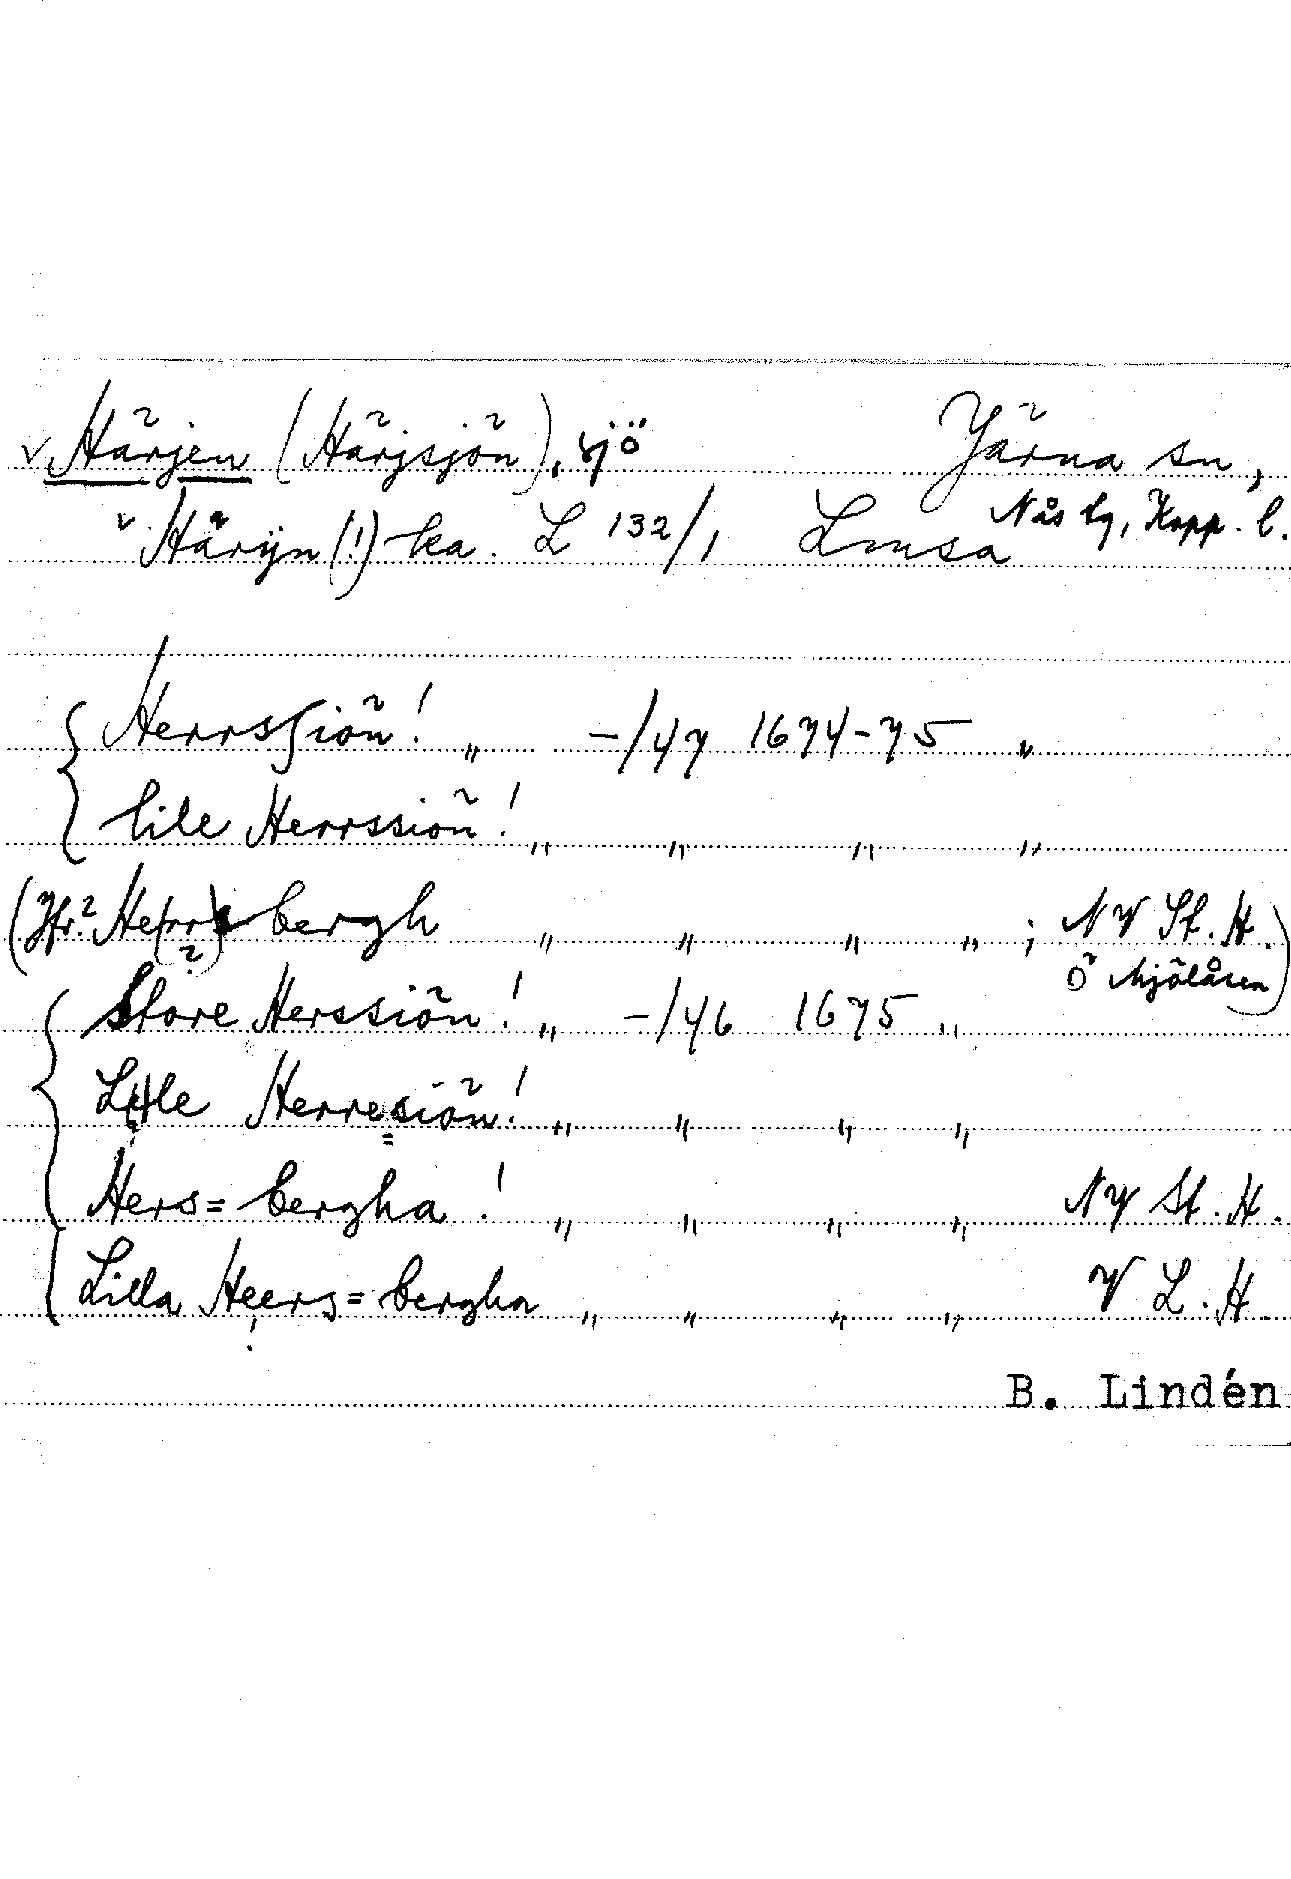 v Härjen (Härjsjön), sjö Järna sn,
Nås tg, Kopp. l.
v. Härijn (!) ka. L 132/1 Lmsa
Herrssiön! „ -/47 1674-75 „
lile Herrssiön! „ „ „ „
(Jfr? He(rr)s bergh „ „ „ „ ; NV St. H.
(?) Ö Mjölåsen)
Store Herssiön! „ -/46 1675 „
Litle Herresiön! „ „ „ „
Hers= bergha! „ „ „ „ NV St. H.
Lilla Heers= bergha „ „ „ „ V L. H.
!
B. Lindén